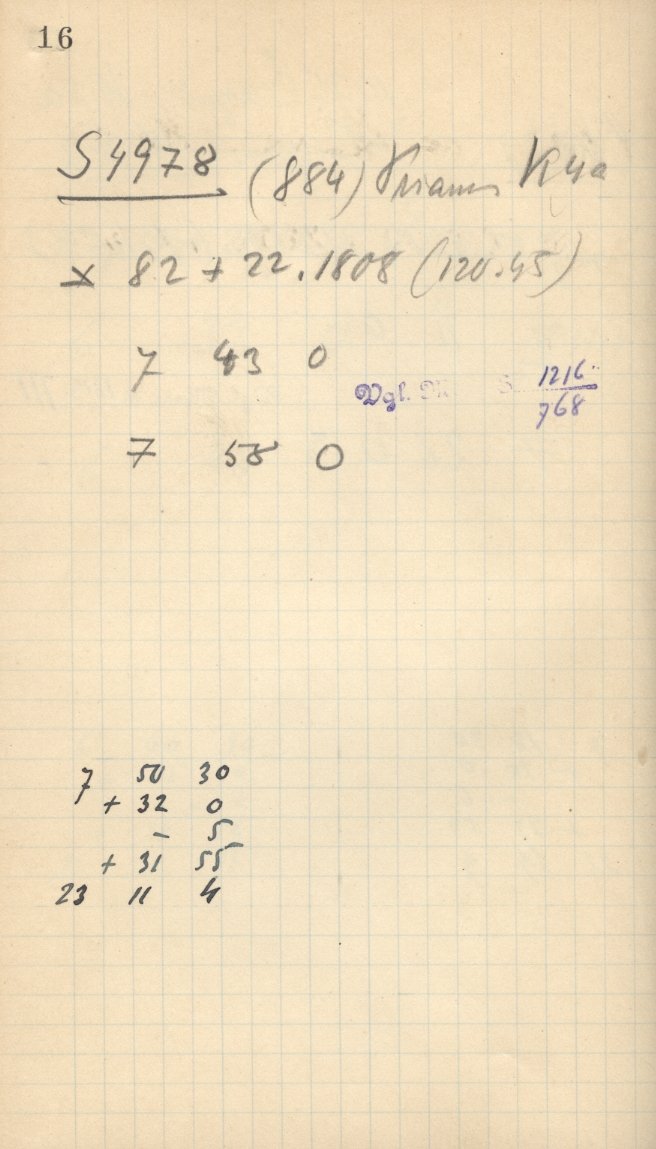 16
S 4978 (884) Priamus K 4a
× 82 + 22.1808 (120.45)
7 43 0
Vgl. S 1216
768
7 58 0
7 50 30
+ 32 0
- 5
+ 31 55
23 11 4